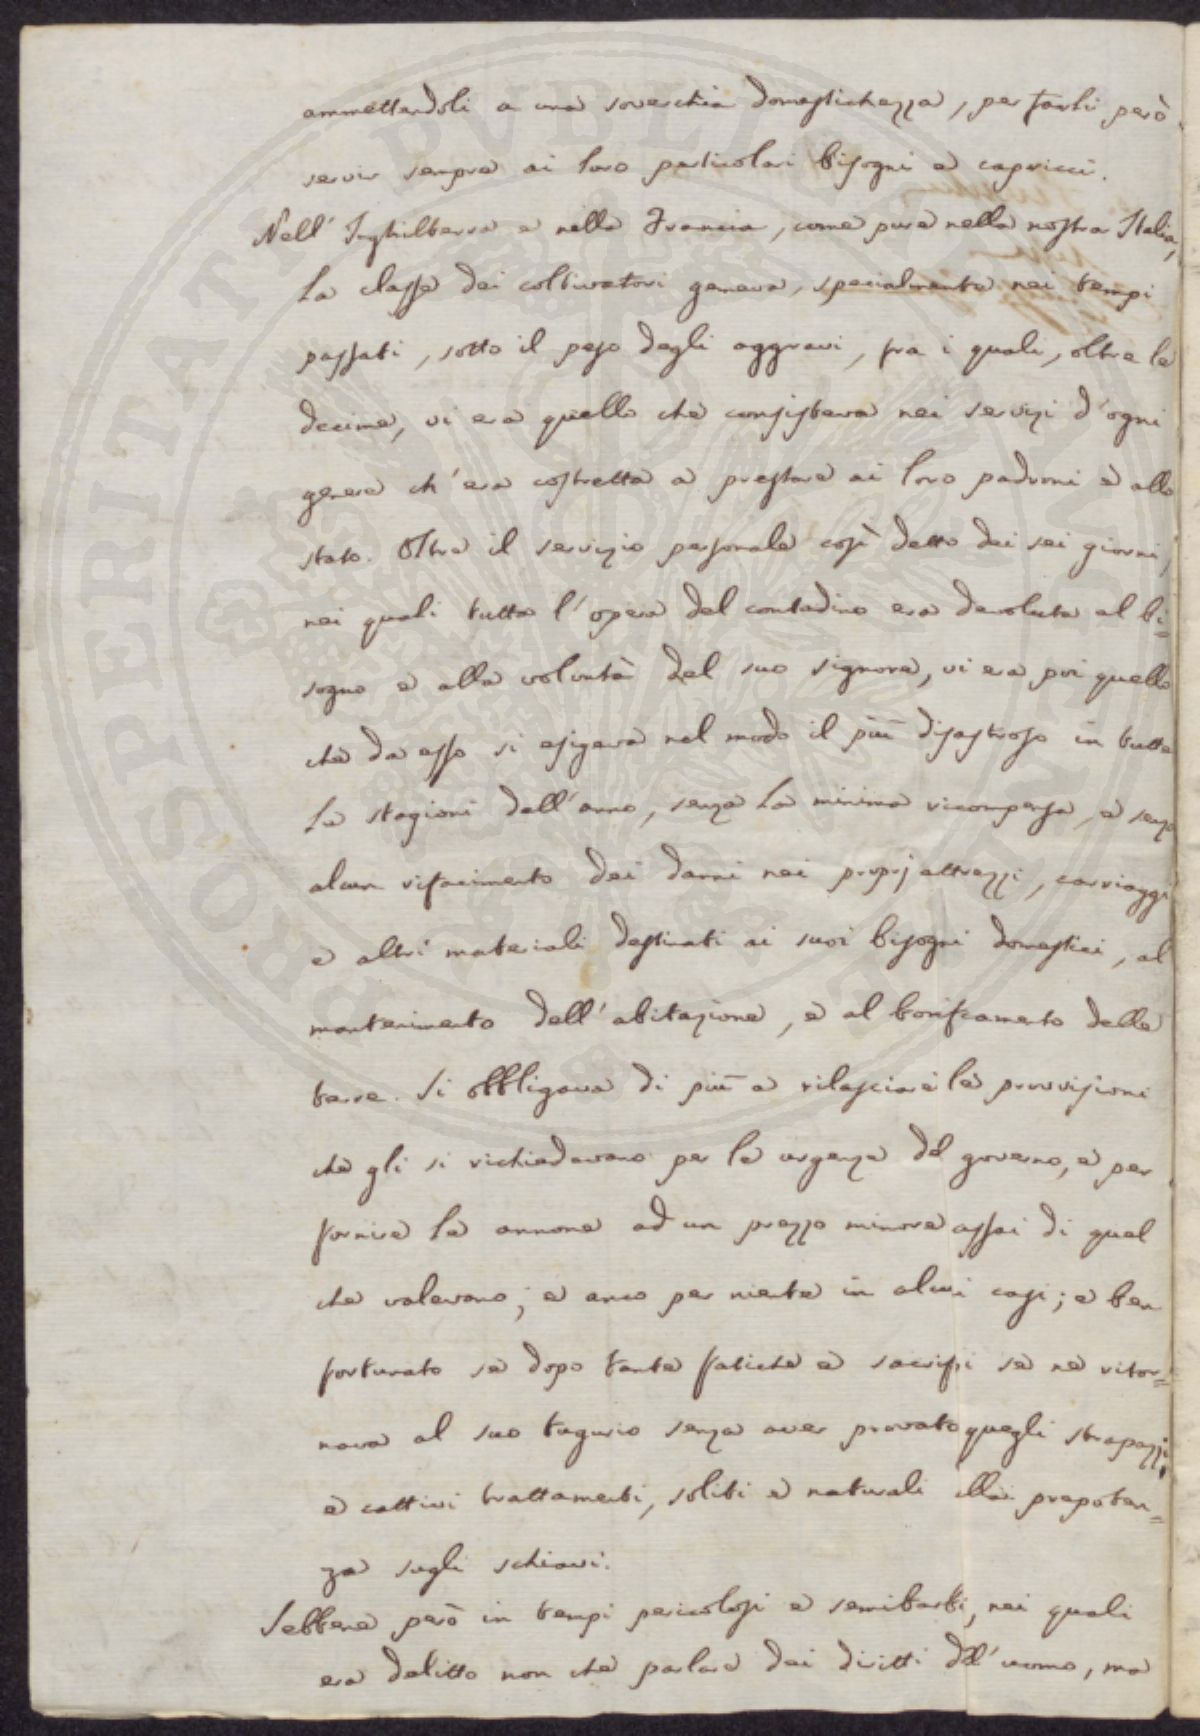 ammettendoli a una soverchia domestichezza, per farli però
servir sempre ai loro particolari bisogni e capricci.
Nell'Inghilterra e nella Francia, come pure nella nostra Italia,
la classe dei coltivatori gemeva, specialmente nei tempi
passati, sotto il peso degli aggravi, fra i quali, oltre le
decime, vi era quello che consisteva nei servizi d'ogni
genere ch'era costretta a prestare ai loro padroni e allo
stato. Oltre il servizio personale così detto dei sei giorni,
nei quali tutta l'opera del contadino era devoluta al bi=
sogno e alla volontà del suo signore, vi era poi quello
che da esso si esigeva nel modo il più disastroso in tutte
le stagioni dell'anno, senza la minima ricompensa, e senza
alcun rifacimento dei danni nei proprj attrezzi, carriaggi
e altri materiali destinati ai suoi bisogni domestici, al
mantenimento dell'abitazione, e al bonificamento delle
terre. Si obbligava di più a rilasciare le provvisioni
che gli si richiedevano per le urgenze del governo, e per
fornire le annone ad un prezzo minore assai di quel
che valevano; e anco per niente in alcuni casi; e ben
fortunato se dopo tante fatiche e sacrifizi se ne ritor=
nava al suo tugurio senza aver provato quegli strapazzi,
e cattivi trattamenti, soliti e naturali alla prepoten=
za sugli schiavi.
Sebbene però in tempi pericolosi e semibarbi, nei quali
era delitto non che parlare dei diritti dell'uomo, ma
PROSPERITATI PVBLICAE